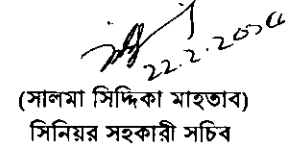 22.2.2026
(সালমা সিদ্দিকা মাহতাব)
সিনিয়র সহকারী সচিব